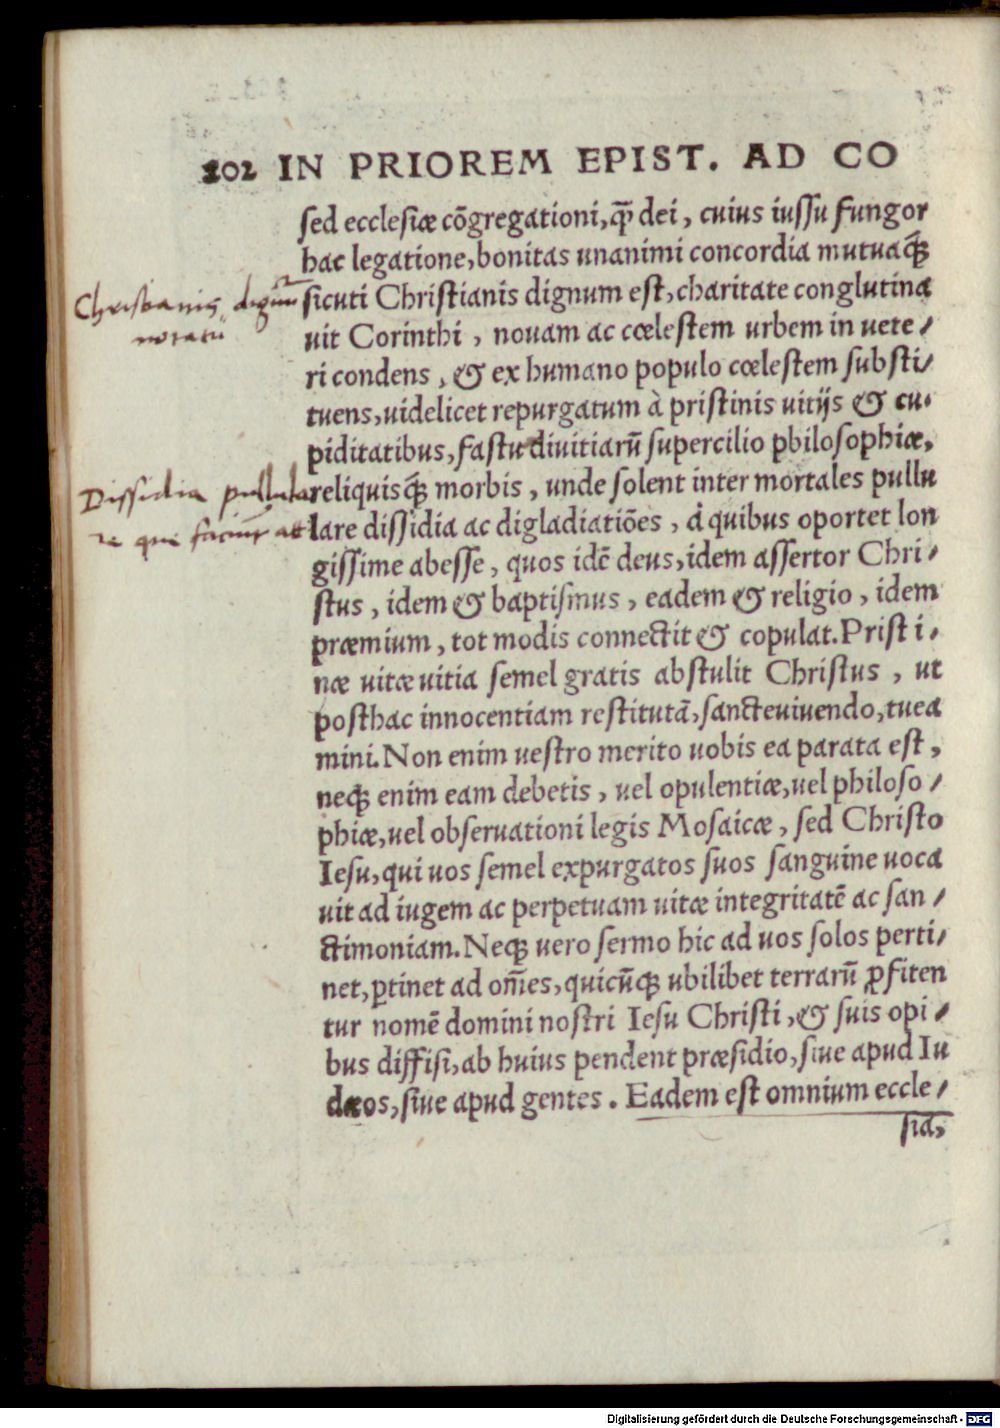 202 IN PRIOREM EPIST. AD CO
sed ecclesiæ cōgregationi, qp̄ dei, cuius iussu fungor
hac legatione, bonitas unanimi concordia mutuaq́;
Christianis dignum
sicuti Christianis dignum est, charitate conglutina
notatu
uit Corinthi, nouam ac cœlestem urbem in uete/
ri condens, & ex humano populo cœlestem substi/
tuens, uidelicet repurgatum à pristinis uitijs & cu/
piditatibus, fastu diuitiarū supercilio philosophiæ,
Dissidia pullula
reliquisq́; morbis, unde solent inter mortales pullu
re que
lare dissidia ac digladiatiōes, à quibus oportet lon
gissime abesse, quos idē deus, idem assertor Chri/
stus, idem & baptismus, eadem & religio, idem
præmium, tot modis connectit & copulat. Pristi/
næ uitæ uitia semel gratis abstulit Christus, ut
posthac innocentiam restitutā, sancte uiuendo, tuea
mini. Non enim uestro merito uobis ea parata est,
neq; enim eam debetis, uel opulentiæ, uel philoso/
phiæ, uel obseruationi legis Mosaicæ, sed Christo
Iesu, qui uos semel expurgatos suos sanguine uoca
uit ad iugem ac perpetuam uitæ integritatē ac san/
ctimoniam. Neq; uero sermo hic ad uos solos perti/
net, ꝑtinet ad oēs, quicūq; ubilibet terrarū ꝓfiten
tur nomē domini nostri Iesu Christi, & suis opi/
bus diffisi, ab huius pendent præsidio, siue apud Iu
dæos, siue apud gentes. Eadem est omnium eccle/
sia,
Digitalisierung gefördert durch die Deutsche Forschungsgemeinschaft - DFG